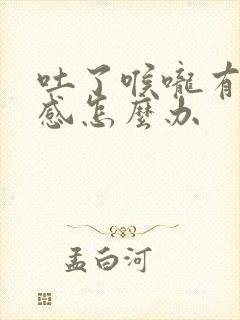 吐了喉嚨有
感怎麼办
孟白河